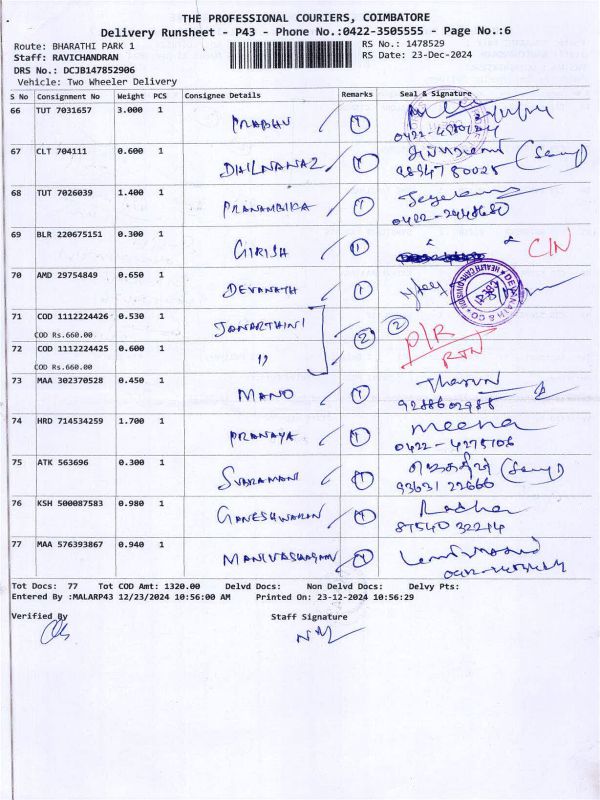 THE PROFESSIONAL COURIERS, COIMBATORE
Delivery Runsheet - P43 - Phone No.:0422-3505555 - Page No.:6
Route: BHARATHI PARK 1
RS No.: 1478529
Staff: RAVICHANDRAN
RS Date: 23-Dec-2024
DRS No.: DCJB147852906
Vehicle: Two Wheeler Delivery
S No Consignment No Weight PCS Consignee Details Remarks Seal & Signature
66 TUT 7031657 3.000 1 PRABHU 1
67 CLT 704111 0.600 1 1 (Same)
9894780025
68 TUT 7026039 1.400 1 PRANAMBIKA 1 Jeyakumar
0422-2448680
69 BLR 220675151 0.300 1 GIRISH 1 C/N
70 AMD 29754849 0.650 1 DEVANATH 1
DEVANATH & CO
71 COD 1112224426 0.530 1 JANARTHINI 2 2 P/R
COD Rs.660.00
RTN
72 COD 1112224425 0.600 1 "
COD Rs.660.00
73 MAA 302370528 0.450 1 MANO 1 Tharun
9288602988
74 HRD 714534259 1.700 1 PRANAYA 1 meena
0422-4275106
75 ATK 563696 0.300 1 SIVARAMANI 1 (Same)
93631 22666
76 KSH 500087583 0.980 1 GANESHWARAN 1 Radha
87540 32214
77 MAA 576393867 0.940 1 MANIVASHAGAM 1
Tot Docs: 77 Tot COD Amt: 1320.00 Delvd Docs: Non Delvd Docs: Delvy Pts:
Entered By :MALARP43 12/23/2024 10:56:00 AM Printed On: 23-12-2024 10:56:29
Verified By Staff Signature